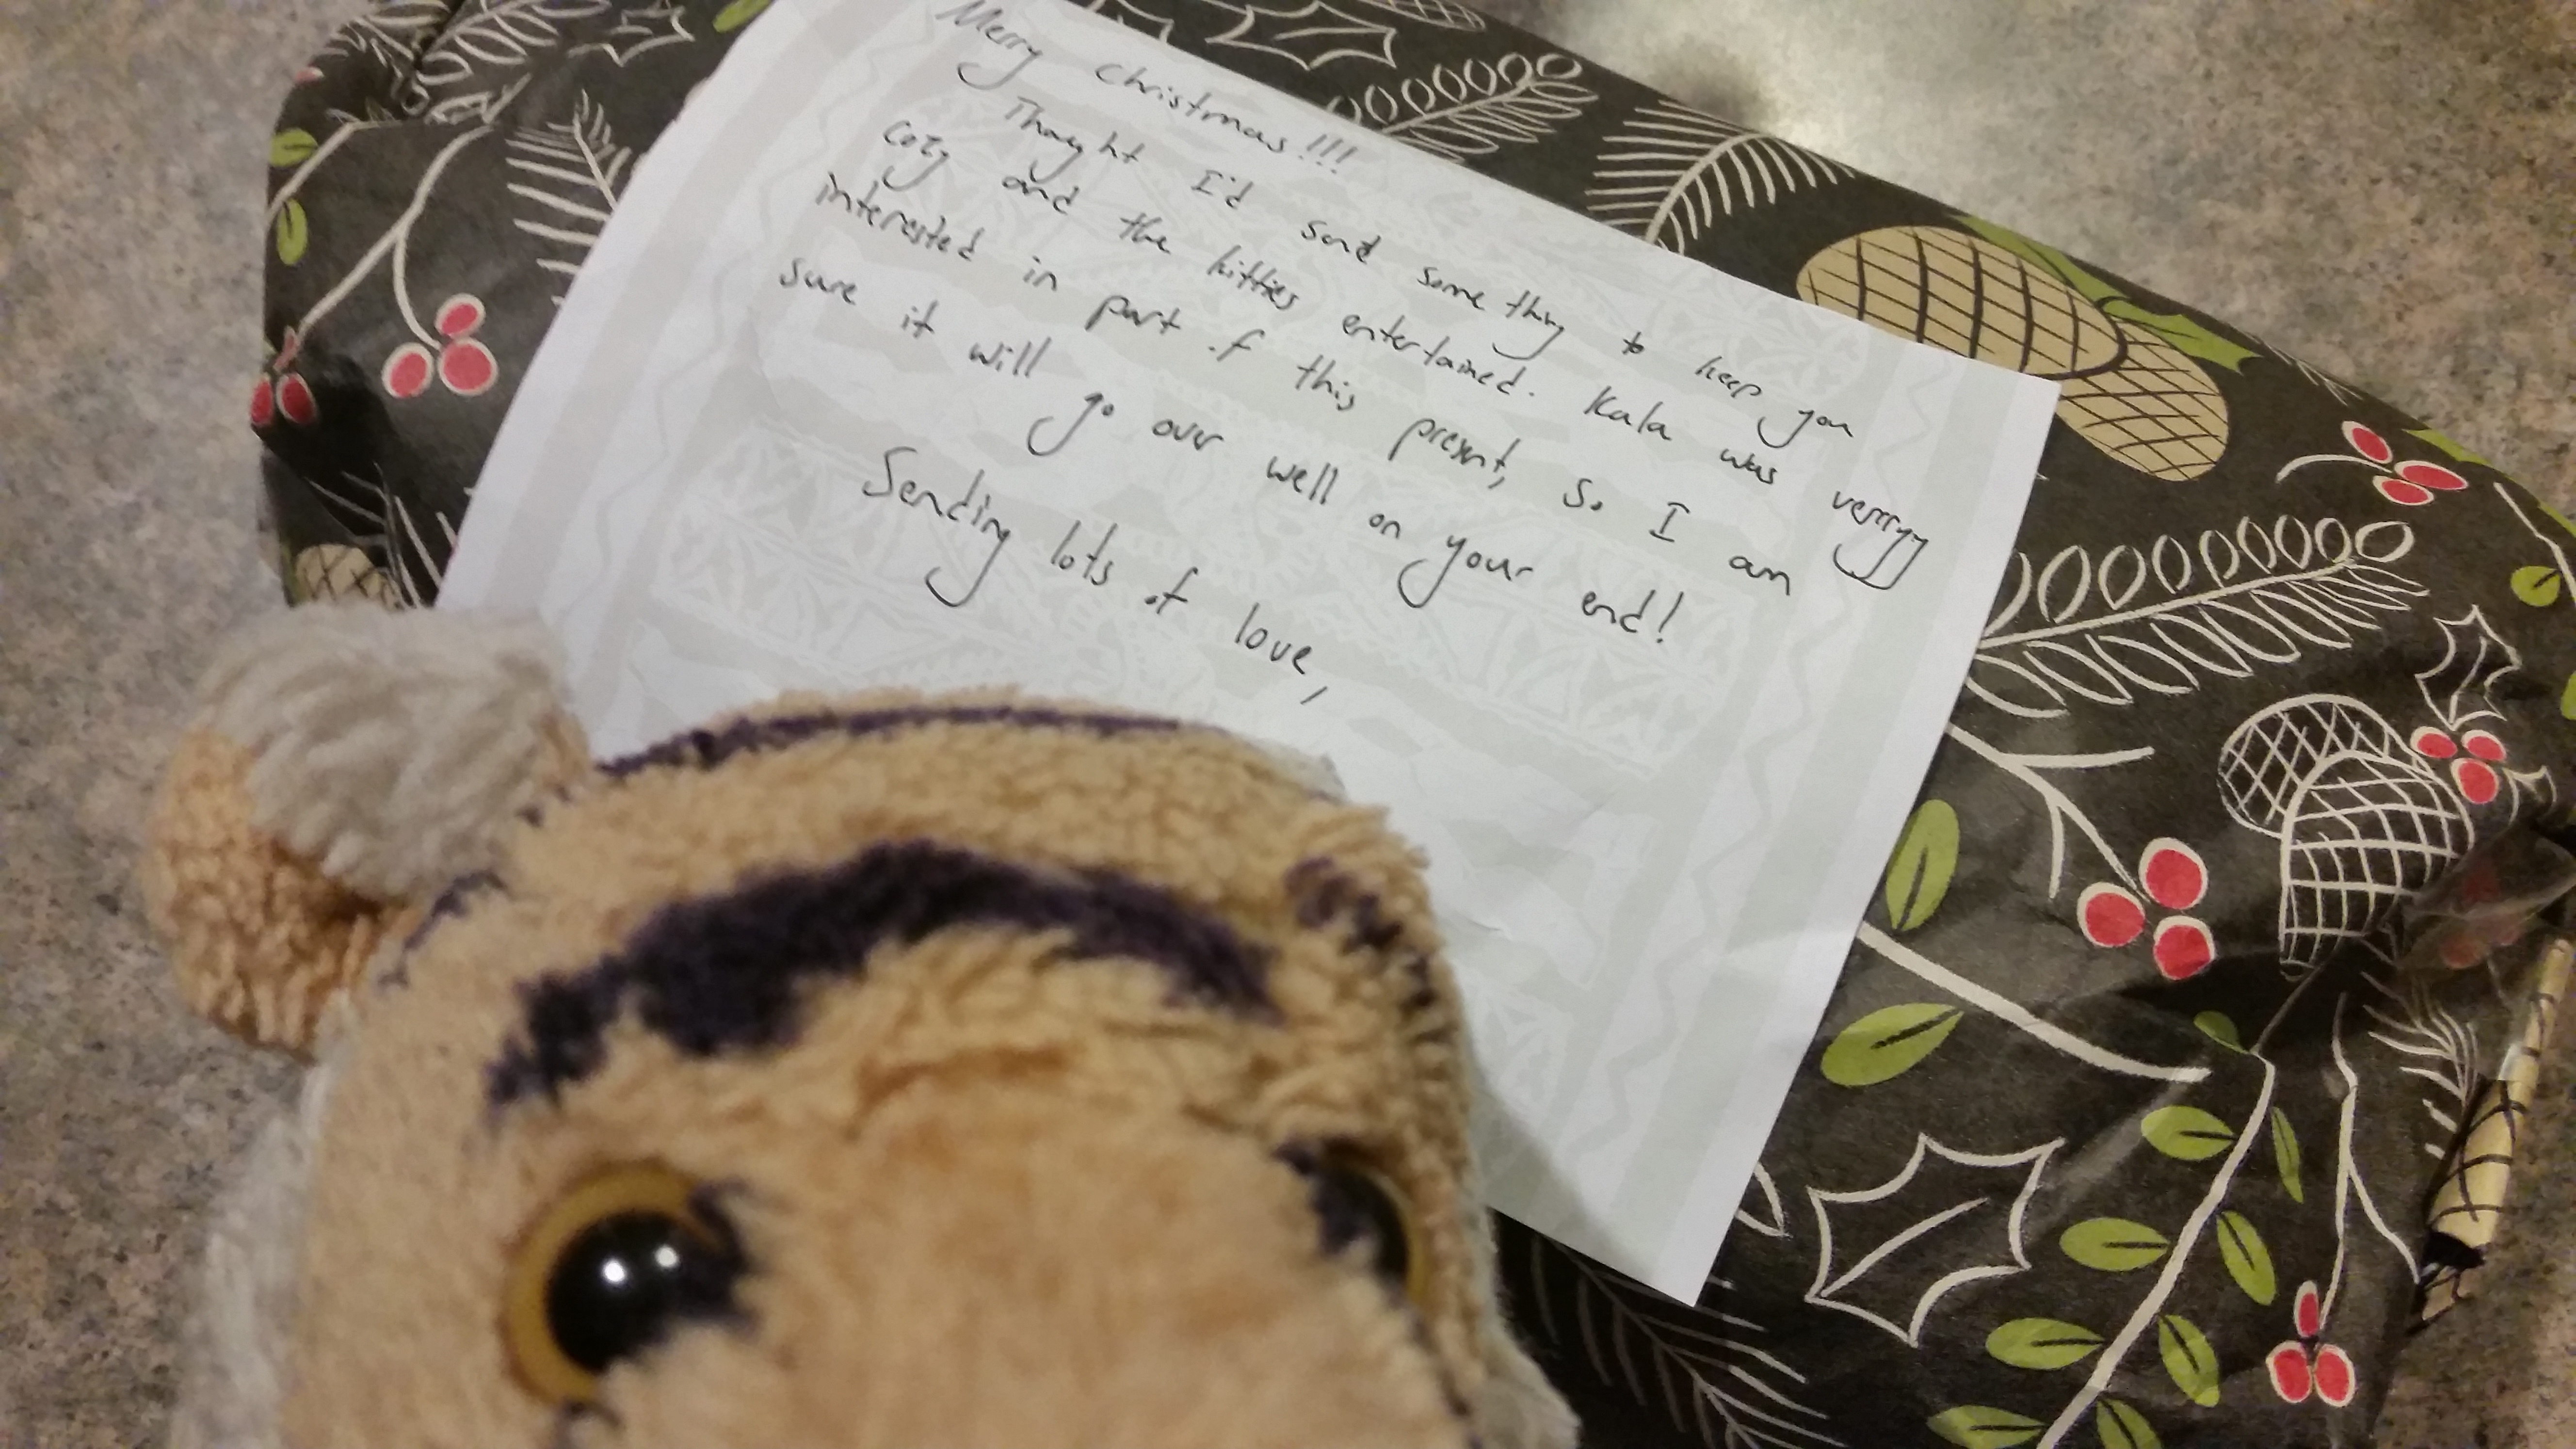 Merry Christmas!!!
Thought I'd send something to keep you
cozy and the kitties entertained. Kala was verrryy
interested in part of this present, so I am
sure it will go over well on your end!
Sending lots of love,